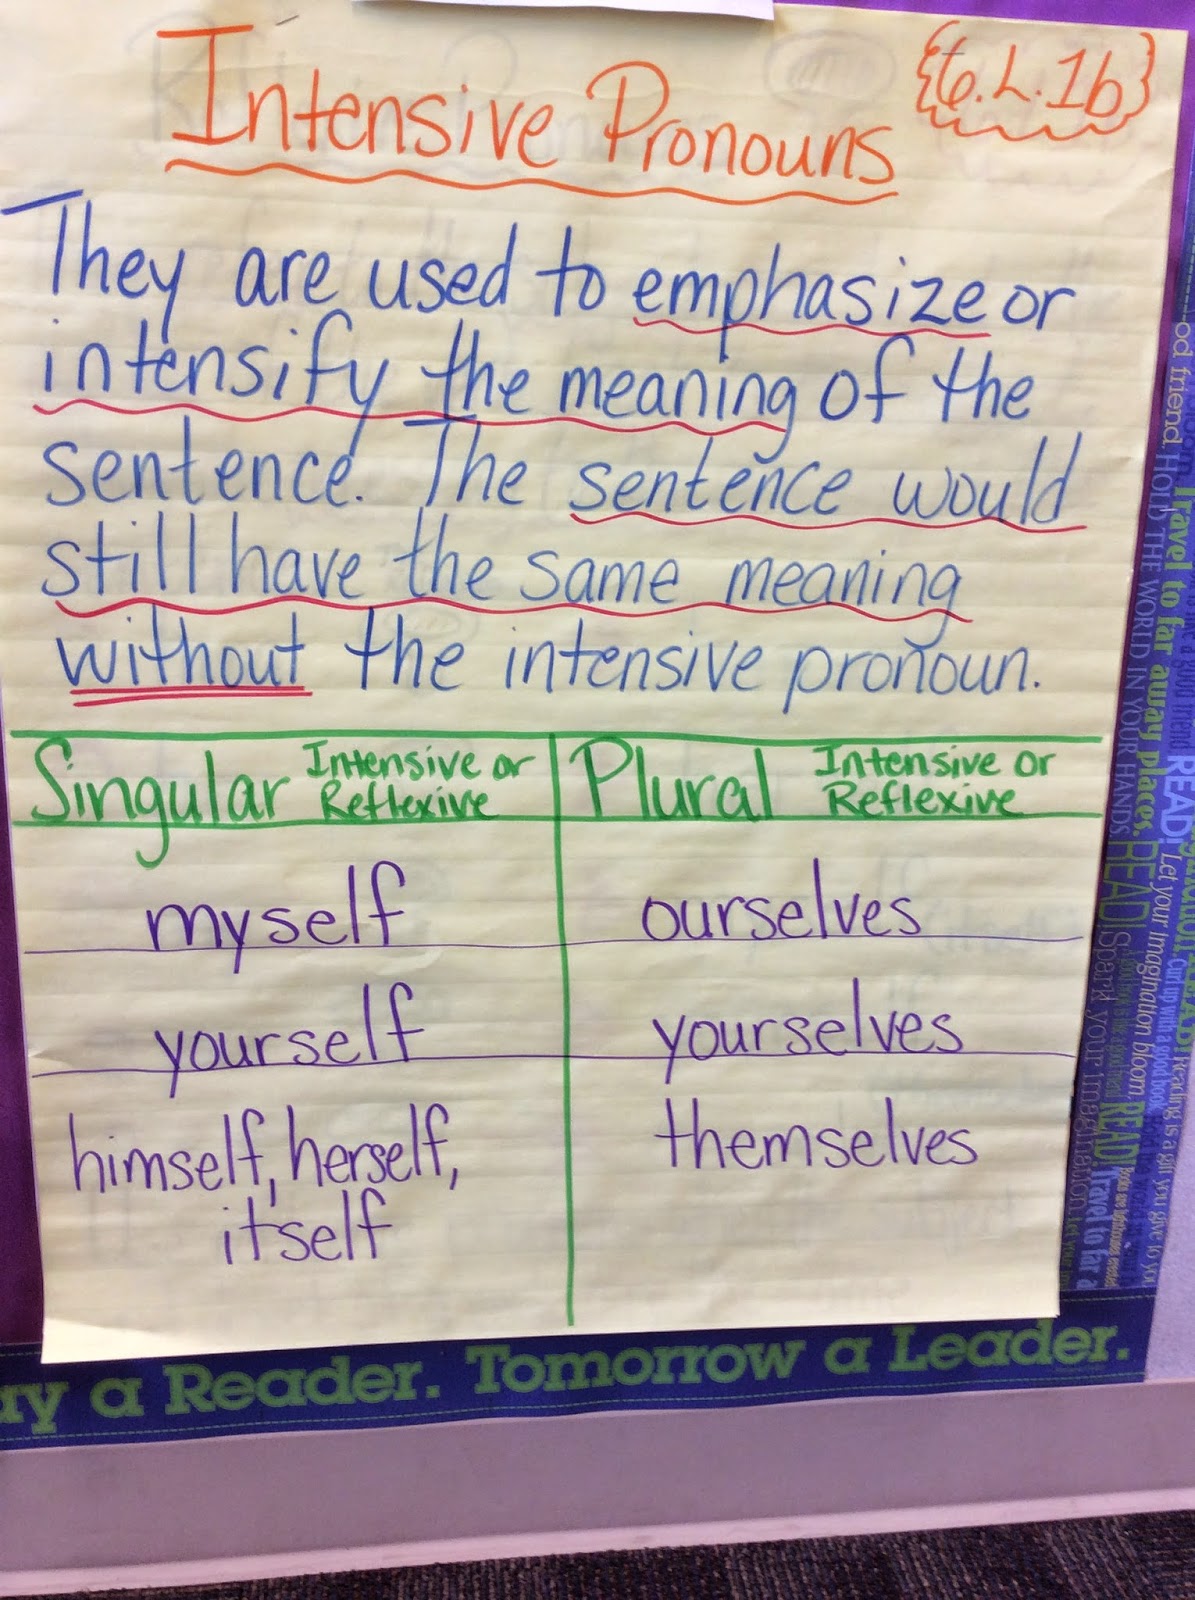 Intensive Pronouns
{6.L.1b}
They are used to emphasize or
intensify the meaning of the
sentence. The sentence would
still have the same meaning
without the intensive pronoun.
Singular Intensive or Reflexive
Plural Intensive or Reflexive
myself
ourselves
yourself
yourselves
himself, herself,
itself
themselves
ay a Reader. Tomorrow a Leader.
od friend. HOLD THE WORLD IN YOUR HANDS.
Travel to far away places.
READ!
Let your imagination bloom.
Curl up with a good book
Reading is a gift you give to you
READ!
Spark your imagination.
READ!
Travel to far a